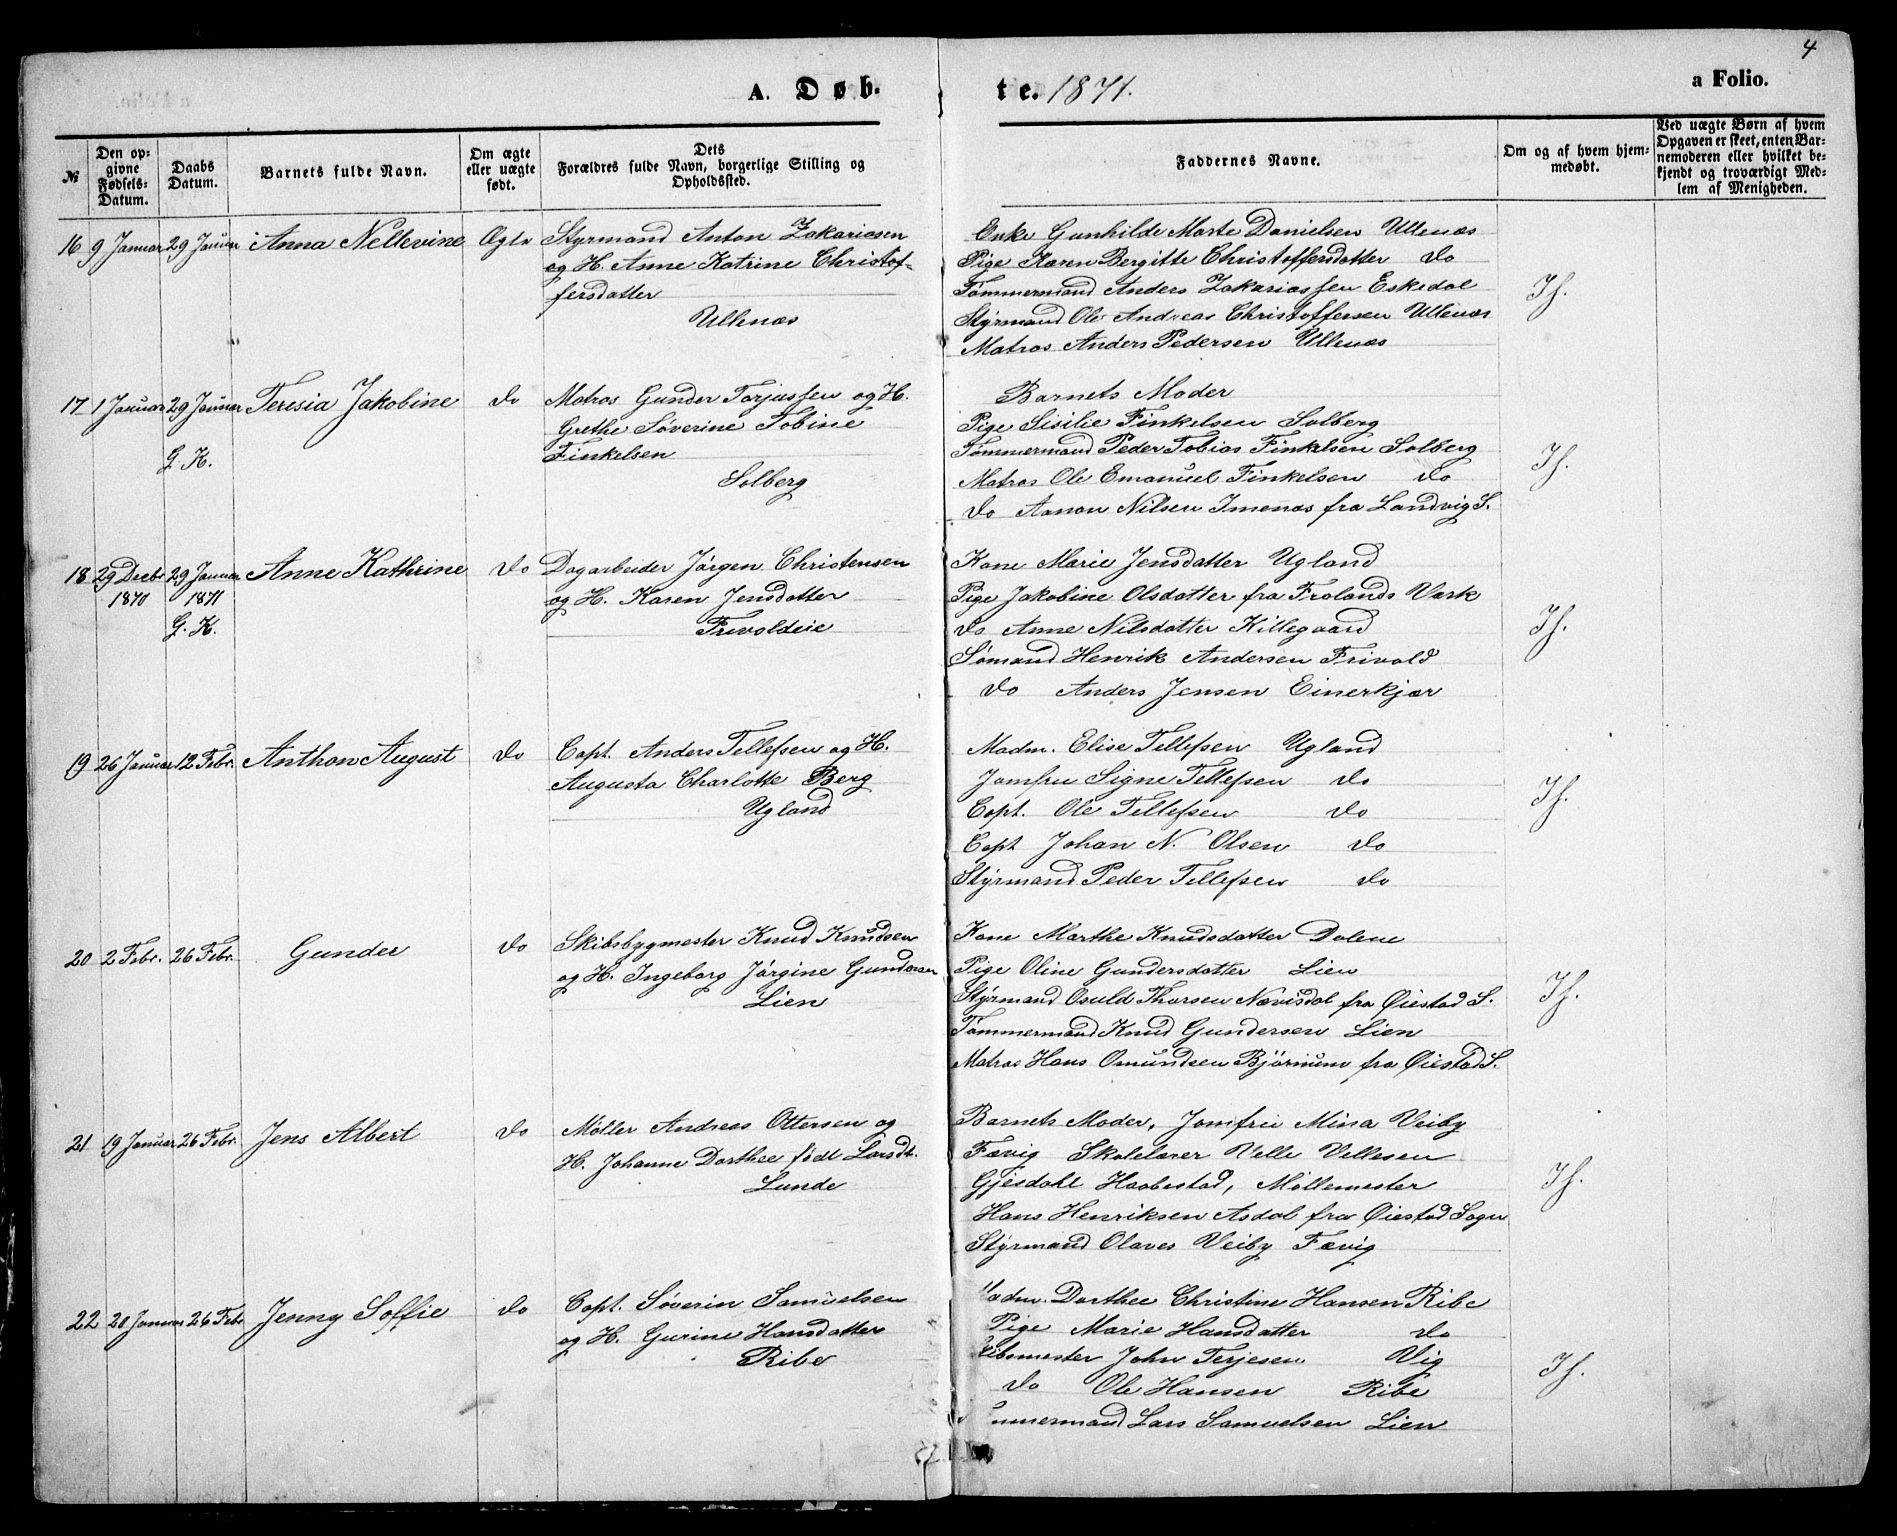 4
A. Døb-
te. 1871.
a Folio.
№
Den op-
givne
Fødsels-
Datum.
Daabs
Datum.
Barnets fulde Navn.
Om ægte
eller uægte
født.
Dets
Forældres fulde Navn, borgerlige Stilling og
Opholdssted.
Faddernes Navne.
Om og af hvem hjem-
medøbt.
Ved uægte Børn af hvem
Opgaven er skeet, enten Bar-
nemoderen eller hvilket be-
kjendt og troværdigt Med-
lem af Menigheden.
16 9 Januar 29 Januar Anna Nellevine Ægte
Styrmand Anton Zakariasen
og H. Anne Katrine Christof-
fersdatter
Ullenæs
Enke Gunhilde Marte Danielsen Ullenæs
Pige Karen Bergitte Christoffersdatter do
Tømmermand Anders Zakariassen Eskedal
Styrmand Ole Andreas Christoffersen Ullenæs
Matros Anders Pedersen Ullenæs
If.
17 1 Januar 29 Januar Teresia Jakobine do
G. K.
Matros Gunder Torjussen og H.
Grethe Søverine Tobine
Finkelsen
Solberg
Barnets Moder
Pige Sisilie Finkelsen Solberg
Tømmermand Peder Tobias Finkelsen Solberg
Matros Ole Emanuel Finkelsen do
do Aanon Nilsen Imenæs fra Landvig S.
If.
18 29 Decbr 29 Januar Anne Kathrine do
1870 1871
G. K.
Dagarbeider Jörgen Christensen
og H. Karen Jensdatter
Frivoldeie
Kone Marie Jensdatter Ugland
Pige Jakobine Olsdatter fra Frolands Værk
do Anne Nilsdatter Killegaard
Sømand Henrik Andersen Frivold
do Anders Jensen Einerkjær
If.
19 26 Januar 12 Febr. Anthon August do
Capt. Anders Tellefsen og H.
Augusta Charlotte Berg
Ugland
Madm. Elise Tellefsen Ugland
Jomfru Signe Tellefsen do
Capt. Ole Tellefsen do
Capt Johan N. Olsen do
Styrmand Peder Tellefsen do
If.
20 2 Febr. 26 Febr. Gunder do
Skibsbygmester Knud Knudsen
og H. Ingeborg Jörgine Gundersen
Lien
Kone Marthe Knudsdatter Dolene
Pige Oline Gundersdatter Lien
Styrmand Osuld Thorsen Nævisdal fra Øiestad S.
Tømmermand Knud Gundersen Lien
Matros Hans Omundsen Bjørnum fra Øiestad S.
If.
21 19 Januar 26 Febr. Jens Albert do
Møller Andreas Ottersen og
H. Johanne Dorthee født Larsdt.
Lunde
Barnets Moder, Jomfru Mina Veiby
Fævig Skolelærer Velle Vellesen
Gjesdahl Haabestad, Møllemester
Hans Henriksen Asdal fra Øiestad Sogn
Styrmand Olaves Veiby Fævig
If.
22 20 Januar 26 Febr Jenny Soffie do
Capt. Søverin Samuelsen
og H. Gurine Hansdatter
Ribe
Madm. Dorthee Christine Hansen Ribe
Pige Marie Hansdatter do
John Terjesen Vig
do Ole Hansen Ribe
Tømmermand Lars Samuelsen Lien
If.